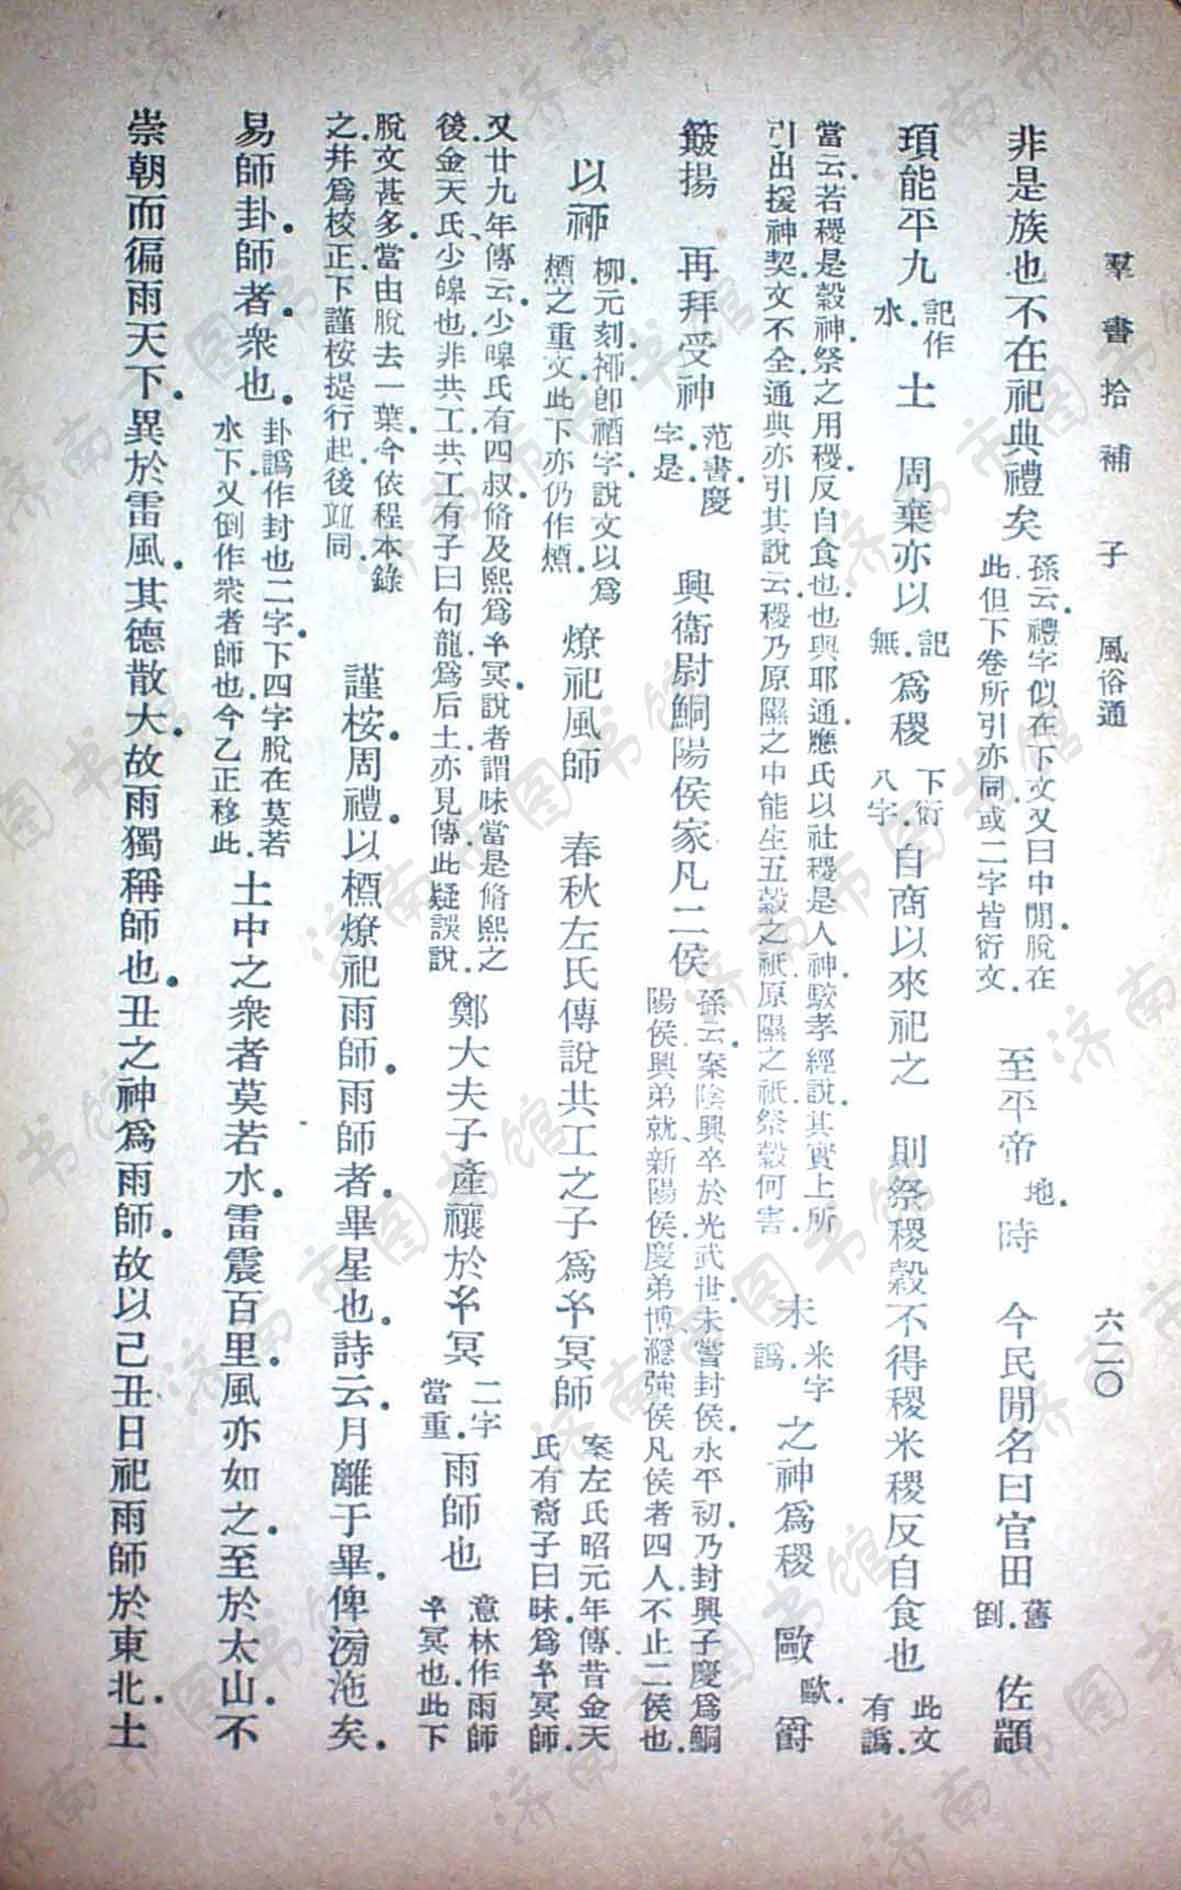 羣書拾補　子　風俗通　六二〇
非是族也不在祀典禮矣 孫云禮字似在下文又曰中閒脫在此但下卷所引亦同或二字皆衍文 至平帝 地 時 今民閒名曰官田 舊倒 佐顓
頊能平九 記作水 土 周棄亦以 記無 爲稷 下衍八字 自商以來祀之 則祭稷穀不得稷米稷反自食也 此文有譌
當云若稷是穀神祭之用稷反自食也也與耶通應氏以社稷是人神駮孝經說其實上所
引出援神契文不全通典亦引其說云稷乃原隰之中能生五穀之祇原隰之祇祭穀何害 未 米字譌 之神爲稷 歐 歐 爵
簸揚 再拜受神 范書慶字是 興衞尉鮦陽侯家凡二侯 孫云案陰興卒於光武世未嘗封侯永平初乃封興子慶爲鮦陽侯興弟就新陽侯慶弟博㶏強侯凡侯者四人不止二侯也
以䄠 柳元刻䄠卽禉字說文以爲槱之重文此下亦仍作槱 燎祀風師 春秋左氏傳說共工之子爲𢆯冥師 案左氏昭元年傳昔金天氏有裔子曰昧爲𢆯冥師
又廿九年傳云少皞氏有四叔脩及熙爲𢆯冥說者謂昧當是脩熙之
後金天氏少皞也非共工共工有子曰句龍爲后土亦見傳此疑誤說 鄭大夫子產禳於𢆯冥 二字當重 雨師也 意林作雨師𢆯冥也此下
脫文甚多當由脫去一葉今依程本錄
之幷爲校正下謹桉提行起後竝同 謹桉周禮以槱燎祀雨師雨師者畢星也詩云月離于畢俾滂沲矣
易師卦師者衆也 卦譌作封也二字下四字脫在莫若水下又倒作衆者師也今乙正移此 土中之衆者莫若水雷震百里風亦如之至於太山不
崇朝而徧雨天下異於雷風其德散大故雨獨稱師也丑之神爲雨師故以己丑日祀雨師於東北土